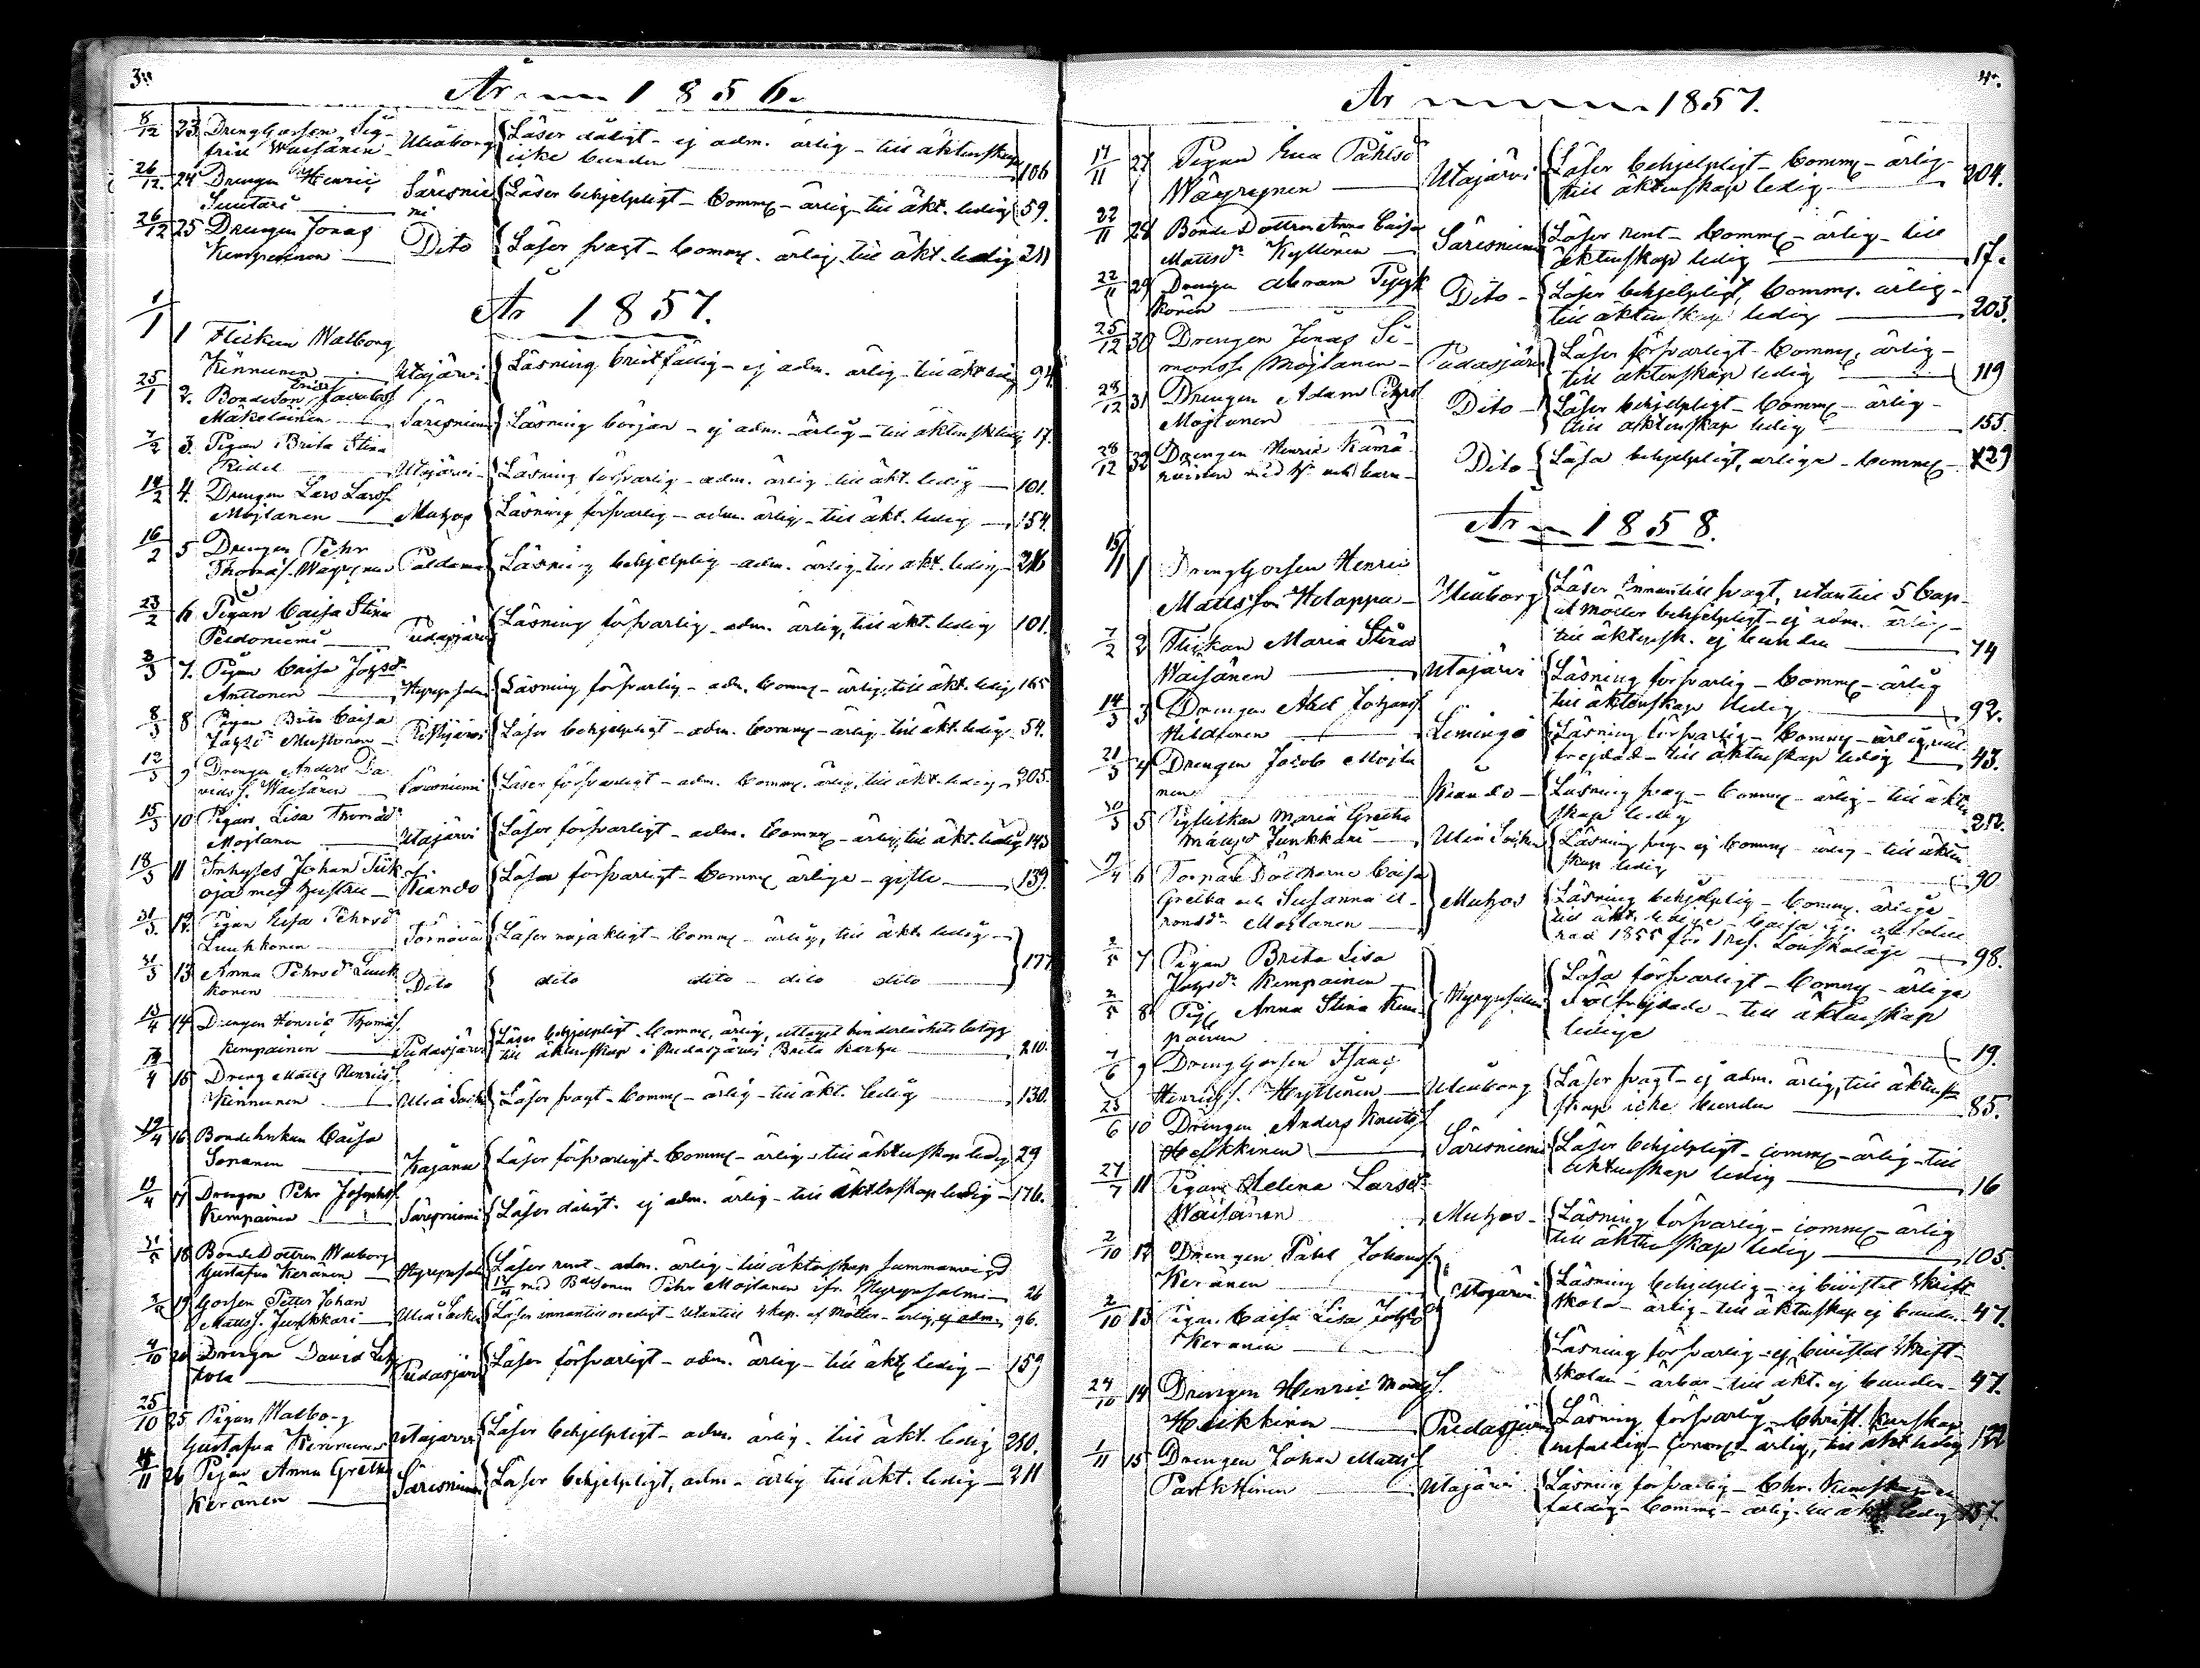 3.
År 1856.
8/12 23. Drenggossen Sig-
frid Waisänen Uleåborg Läser dåligt - ej adm. ärlig - till äktenskap
icke bunden 106
26/12 24 Drengen Henric
Suutari Säresnie Läser behjelpligt - Comm - ärlig till äkt. ledig 59.
mi
26/12 25 Drengen Jonas
Kemppainen Dito Läser svagt - Comm. ärlig till äkt. ledig 211
År 1857.
1/1 1 Flickan Walborg
Kinnunen Utajärvi Läsning bristfällig - ej adm. ärlig till äkt ledig 94.
25/1 2. Bondeson Jacobss
Mäkeläinen Säresniemi Läsning börjar - ej adm. ärlig - till äktensk ledig 17.
7/2 3. Pigan Brita Stina
Utajärvi Läsning försvarlig - adm. ärlig till äkt. ledig 101.
14/2 4. Drengen Lars Larss
Mojlanen Muhos Läsning försvarlig - adm. ärlig - till äkt. ledig 154.
16/2 5 Drengen Pehr
Thomas. Paldamo Läsning behjelplig - adm. ärlig till äkt. ledig 216
23/2 6 Pigan Caisa Stina
Peldoniemi Pudasjärvi Läsning försvarlig - adm. ärlig, till äkt. ledig 101.
3/3 7. Pigan Caisa
Anttonen Hyrynsalmi Läsning försvarlig - adm. Comm - ärlig, till äkt. ledig 165
8/3 8 Pigan Brita Caisa
Mustonen Läser behjelpligt - adm. Comm - ärlig till äkt. ledig 54.
12/3 9 Drengen Anders Da
vids S. Waisänen Säresniemi Läser försvarligt - adm. Comm. ärlig, till äkt. ledig 205.
15/3 10 Pigan Lisa Thomasdr
Mojlanen Utajärvi Läser försvarligt - adm. Comm - ärlig, till äkt. ledig 143
18/3 11 Inhyses Johan Tik
oja med hustru Kiando Läsa försvarligt - Comm ärliga - gifte 139.
31/3 12. Pigan Pehrsdr
Luukkonen Läser nöjaktigt - Comm - ärlig, till äkt. ledig
31/3 13 Anna Pehrsdr Luuk
konen Dito dito dito dito dito 177
13/4 14 Drengen Henric Thomas S.
Kempainen Pudasjärvi Läser behjelpligt - Comm, ärlig, uttaget hinderlöshets betyg
till äktenskap i Pudasjärvi Brita 210.
19/4 15 Dreng Matts Henricss
Kinnunen Uleå Socken Läser svagt - Comm - ärlig - till äkt. ledig 130.
19/4 16 Caisa
Kajana Läser försvarligt - Comm - ärlig - till äktenskap ledig 29
19/4 17 Drengen Pehr Josephss
Kempainen Säresniemi Läser dåligt - ej adm. ärlig - till äktenskap ledig 176.
18 BondeDottren Walborg
Gustafva Keränen Hyrynsalmi Läser rent - adm. ärlig - till äktenskap sammanvigd
med Pehr Mojlanen ifr. Hyrynsalmi 26
19 Gossen Petter Johan
Matts S. Junkkari Uleå Socken Läser innantill redigt - utantill - ärlig, ej adm. 96.
4/10 20 Drengen David
Pudasjärvi Läser försvarligt - adm. ärlig - till äkt ledig 159
25/10 25 Pigan Walborg
Gustafva Kinnunen Utajärvi Läser behjelpligt - adm. ärlig - till äkt. ledig 230.
26 Pigan Anna Gretha
Keränen Säresniemi Läser behjelpligt, adm - ärlig till äkt. ledig 211
4.
År 1857.
17/11 27 Pigan Eva Påhlsdr
Utajärvi Läser behjelpligt - Comm - ärlig
till äktenskap ledig 204.
22/11 28 Bonde Dottren Anna Caisa
Mattsdr Kyllönen Säresniemi Läser rent - Comm - ärlig - till
äktenskap ledig 17.
22/11 29 Drengen Abram Pyyk
könen Dito Läser behjelpligt, Comm. ärlig -
till äktenskap ledig 203.
25/12 30 Drengen Jonas Si-
monss Mojlanen Pudasjärvi Läser försvarligt - Comm, ärlig -
till äktenskap ledig 119
28/12 31 Drengen Adam Pehrs
Mojlanen Dito Läser behjelpligt - Comm - ärlig -
till äktenskap ledig 155.
28/12 32 Drengen Henric Kämä
räinen med h. och barn Dito Läsa behjelpligt, ärliga - Comm 129
År 1858.
15/1 1 Drenggossen Henric
Mattsson Holappa Uleåborg Läser innantill svagt, utantill 5 Cap.
behjelpligt - ej adm. ärlig -
till äktensk. ej bunden 74
7/2 2 Flickan Maria Stina
Waisänen Utajärvi Läsning försvarlig - Comm - ärlig
till äktenskap ledig 92.
14/3 3 Drengen Abel Johans S.
Limingo Läsning försvarlig - Comm - ärlig, väl
frejdad - till äktenskap ledig 43.
21/3 4 Drengen Jacob Mojla
nen Kiando Läsning svag - Comm - ärlig - till äkten
skap ledig 212.
30/3 5 Pigflickan Maria Gretha
Månsdr Junkkari Uleå Socken Läsning svag - ej Comm - ärlig - till äkten
skap ledig 90
6 Döttrarne Caisa
Gretha och Susanna
Mojlanen Muhos Läsning behjelplig - Comm. ärliga -
till äkt. lediga - Caisa
rad 1855 för 1 res. Lönskaläge 98.
2/5 7 Pigan Brita Lisa
Kempainen
2/5 8 Pig Anna Stina Kem
painen Hyrynsalmi Läsa försvarligt - Comm - ärliga
välfrejdade - till äktenskap
lediga 19.
7/6 9 Drenggossen Isaac
Henrics S. Hyttinen Uleåborg Läser svagt - ej adm. ärlig, till äkten
skap icke bunden 85.
23/6 10 Drengen Anders Knuts
Heikkinen Säresniemi Läser behjelpligt - comm - ärlig - till
äktenskap ledig 16
27/7 11 Pigan Helena Larsdr
Waisänen Muhos Läsning försvarlig - comm - ärlig
till äktenskap ledig 105.
2/10 12 Drengen Påhl Johans S.
Keränen Utajärvi Läsning behjelplig - ej bivistat Skrift
skola - ärlig - till äktenskap ej bunden 47.
2/10 13 Pigan Caisa Lisa
Keränen Läsning försvarlig - ej bivistat Skrift-
skolan - ärbar - till äkt. ej bunden - 47.
24/10 14 Drengen Henric S.
Heikkinen Pudasjärvi Läsning försvarlig - Christ. kunskap
enfaldig - Comm - ärlig, till äkt ledig 122
1/11 15 Drengen Johan Matts S
Parkkinen Utajärvi Läsning försvarlig - Chr. Kunskap en
faldig - Comm - ärlig - till äkt ledig 157.